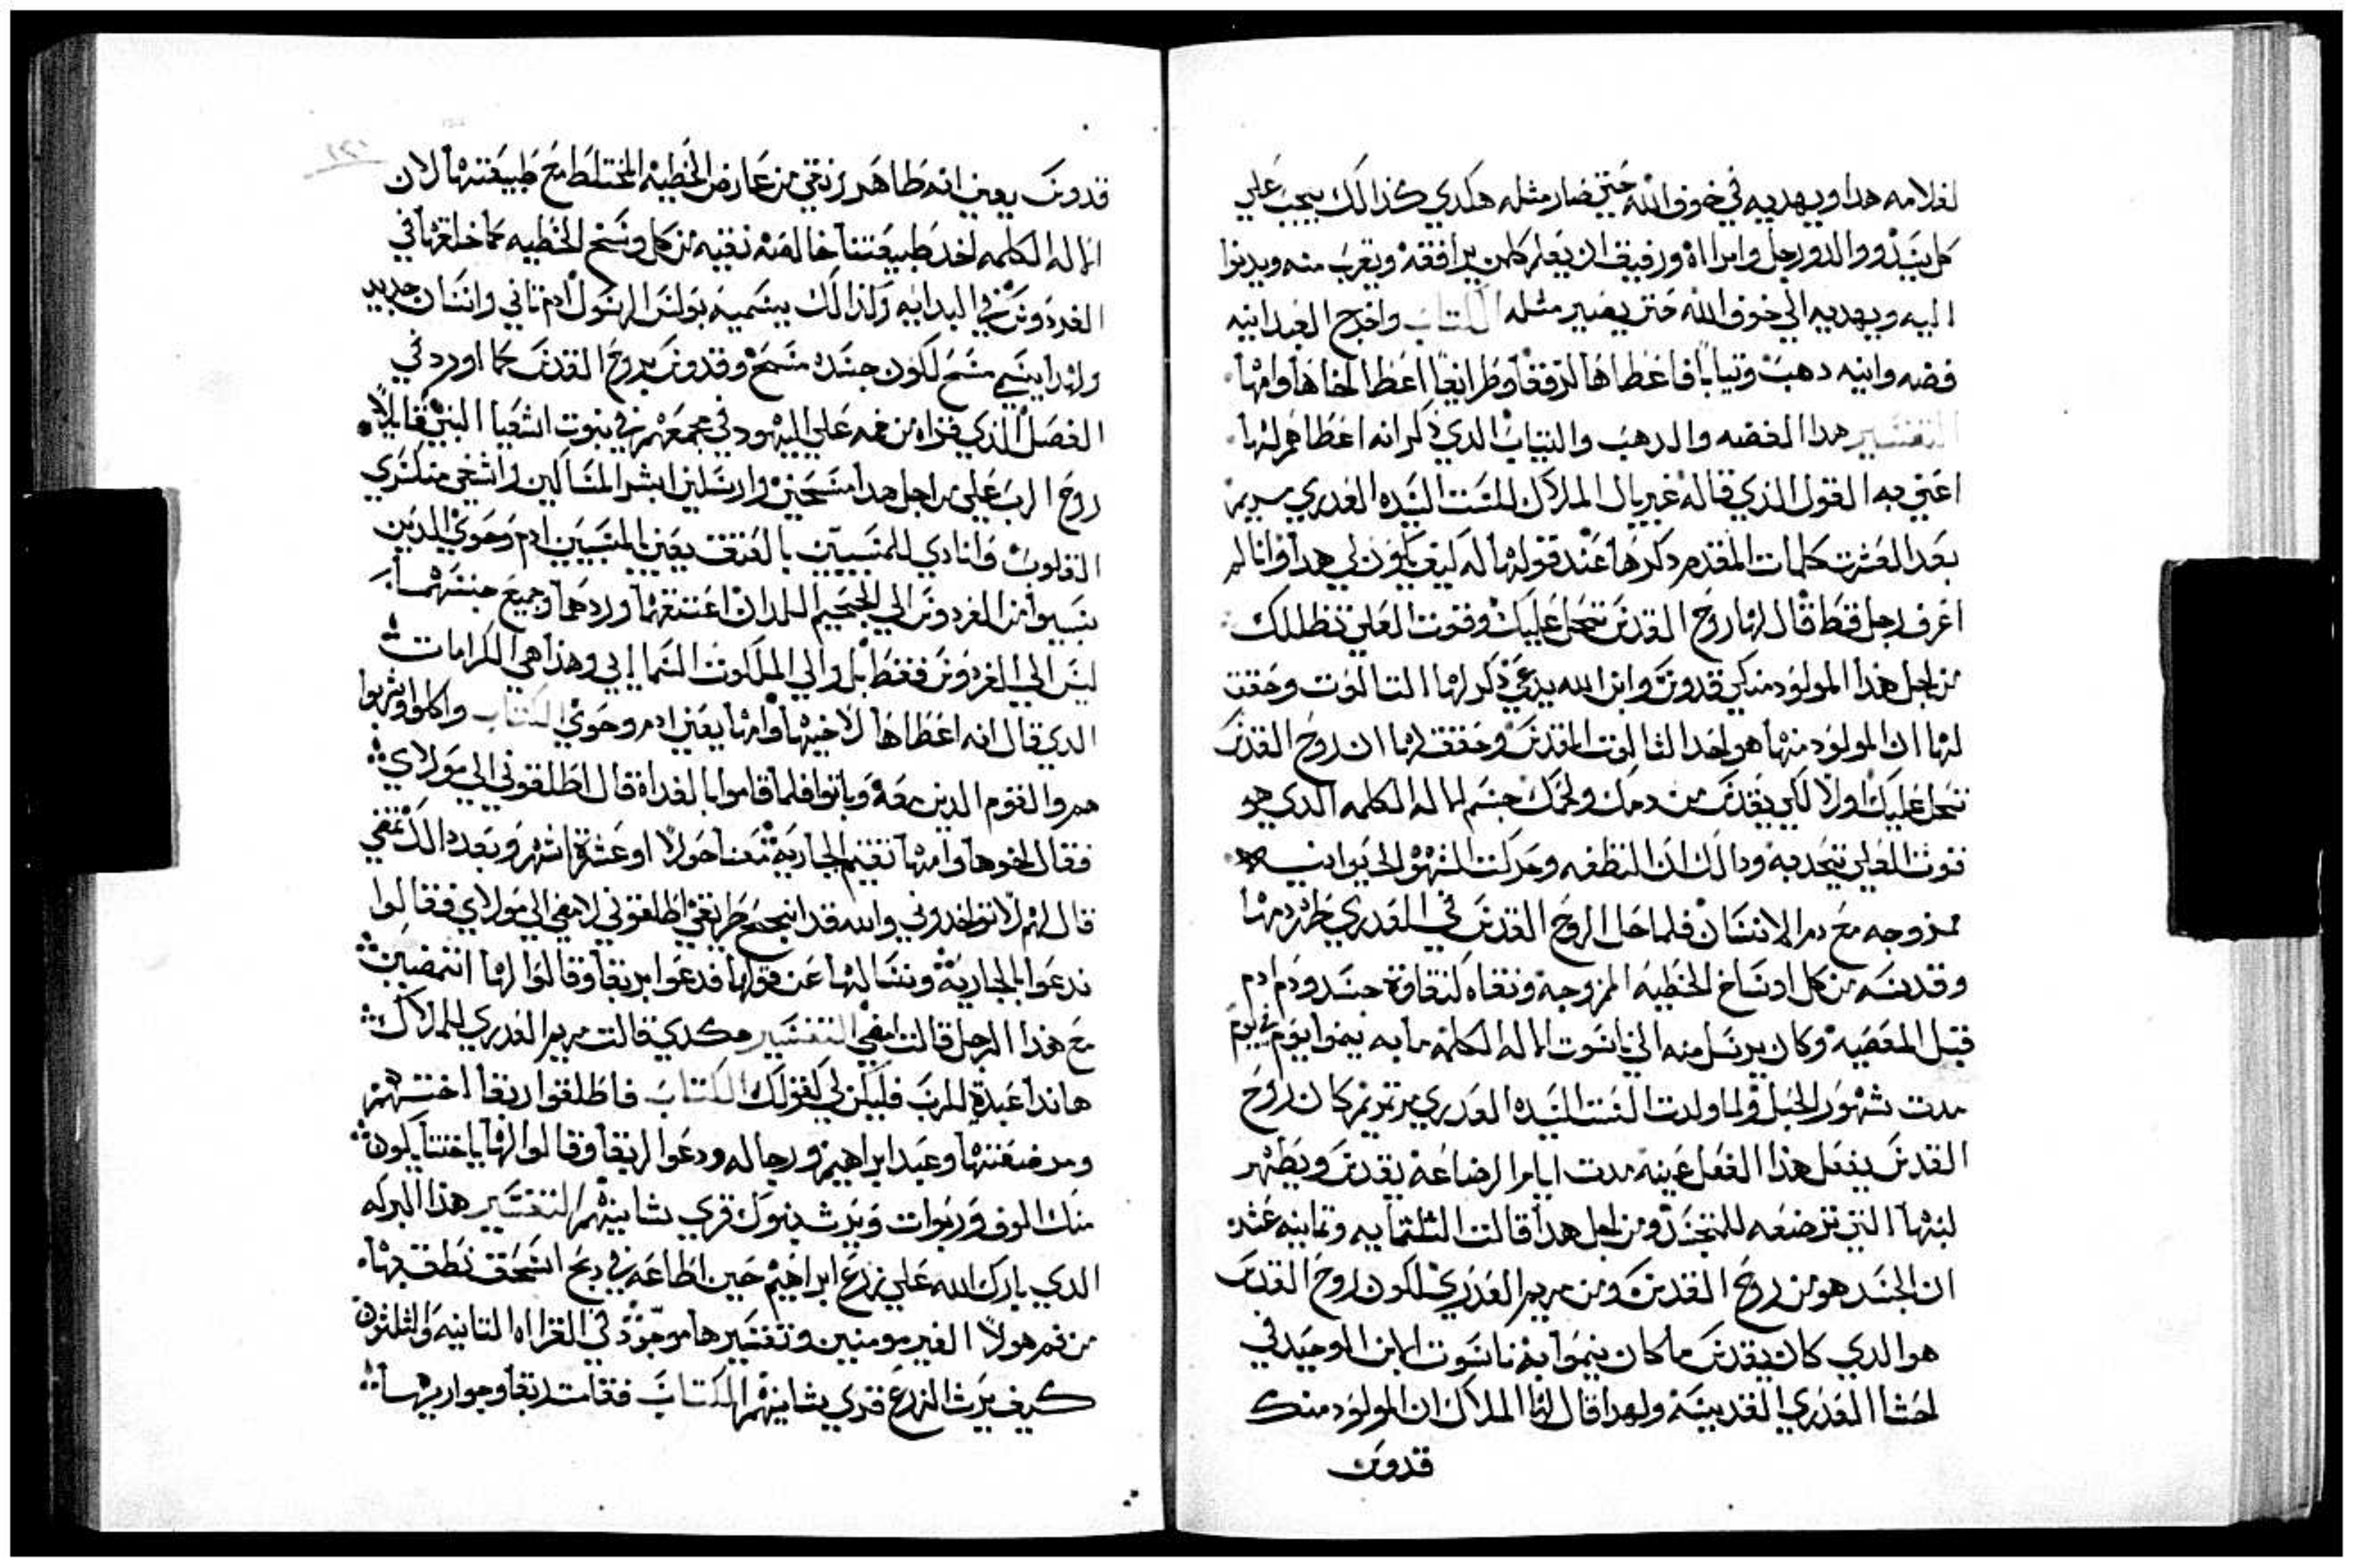 لغلامه هدا ويهديه في خوف الله حتي صار مثله هكدي كذالك يجب علي
كل سيد ووالد ورجل وامراه ورفيق ان يعلم كلمن يرافقه ويقرب منه ويدنوا
اليه ويهديه الي خوف الله حتي يصير مثله الكتاب واخرج العبد انيه
فضه وانيه دهب وتياباً فاعطاها لرفقا وطرايفاً اعطا لاخاها وامها
التفسير هدا الفضه والدهب والتياب الدي ذكر انه اعطاهم لها
اعني به القول الذي قاله غبريال الملاك للست السيده العدري مريم
بعد العشرت كلمات المقدم دكرها عند قولها له كيف يكون لي هدا وانا لم
اعرف رجل قط قال لها روح القدس تحل عليك وقوت العلي تظللك
من اجل هذا المولود منكي قدوس وابن الله يدعي ذكر لها التالوت وحقق
لها ان المولود منها هو احد التالوت المقدس وحقق لها ان روح القدس
تحل عليك اولاً لكي يقدس من دمك ولحمك جسم لاله الكلمه الدي هو
قوت العلي يتحد به ودالك ان النطفه وحركت الشهوه الحيوانيه
ممزوجه مع دم الانسان فلما حل الروح القدس في العدري طهر دمها
وقدسه من كل اوساخ الخطيه الممزوجه ونقاه كنقاوة جسد ودم ادم
قبل المعصيه وكان يرسل منه الي ناسوت الاله الكلمه ما به ينموا يوم في يوم
مدت شهور الحبل ولما ولدت الست السيده العدري مرتمريم كان روح
القدس يفعل هذا الفعل عينه مدت ايام الرضاعه يقدس ويطهر
لبنها التي ترضعه للمتجسد ومن اجل هدا قالت التلتمايه وتمانيه عشر
ان الجسد هو من روح القدس ومن مريم العدري لكون روح القدس
هو الدي كان يقدس ما كان ينموا به ناسوت الابن الوحيد في
احشا العدري القديسه ولهدا قال لها الملاك ان المولود منك
قدوس
قدوس يعني انه طاهر نقي من عارض الخطيه المختلط مع طبيعتها لان
الاله الكلمه اخد طبيعتنا خالصه نقيه من كل وسخ الخطيه كما خلقها في
الفردوس في البدايه ولذالك يسميه بولس الرسول ادم تاني وانسان جديد
وايداً يسمي مسيح لكون جسده مسح وقدوس بروح القدس كما اورد في
الفصل الذي قراه من فمه علي اليهود في مجمعهم في نبوت اشعيا النبي قايلاً
روح الرب علي من اجل هدا مسحني وارسلني ابشر المساكين واشفي منكسري
القلوب وانادي للمسبيين بالعتق يعني المسبيين ادم وحوي الذين
سبيوا من الفردوس الي الجحيم اللدان اعتقهما وردهما وجميع جنسهما
ليس الي الفردوس فقط بل والي الملكوت السماىي وهذا هي الكرامات
الدي قال انه اعطاها لاخيها وامها يعني ادم وحوي الكتاب واكلوا وشربوا
هم والقوم الدين معه وباتوا فلما قاموا بالغداة قال اطلقوني الي مولاي
فقال اخوها وامها تقيم الجاريه معنا حولاً او عشرة اشهر وبعد دالك تمضي
قال لهم لا تواخروني والله قد انجح طريقي اطلقوني لامضي الي مولاي فقالوا
ندعوا بالجاريه ونسالها عن قولها فدعوا بربقا وقالوا لها اتمضين
مع هذا الرجل قالت امضي التفسير هكدي قالت مريم العدري للملاك
هاندا عبدة للرب فليكن لي كقولك الكتاب فاطلقوا ربقا اختهم
ومرضعتها وعبد ابراهيم ورجاله ودعوا لربقا وقالوا لها يا اختنا يكون
منك الوف وربوات ويرث بنوك قري شانيهم التفسير هذا البركه
الدي بارك الله علي زرع ابراهيم حين اطاعه في دبح اسحق نطق بها
من فم هولا الغير مومنين وتفسيرها موجود في القراه التانيه والتلتون
كيف يرث الزرع قري شانيهم الكتاب فقامت ربقا وجواريها